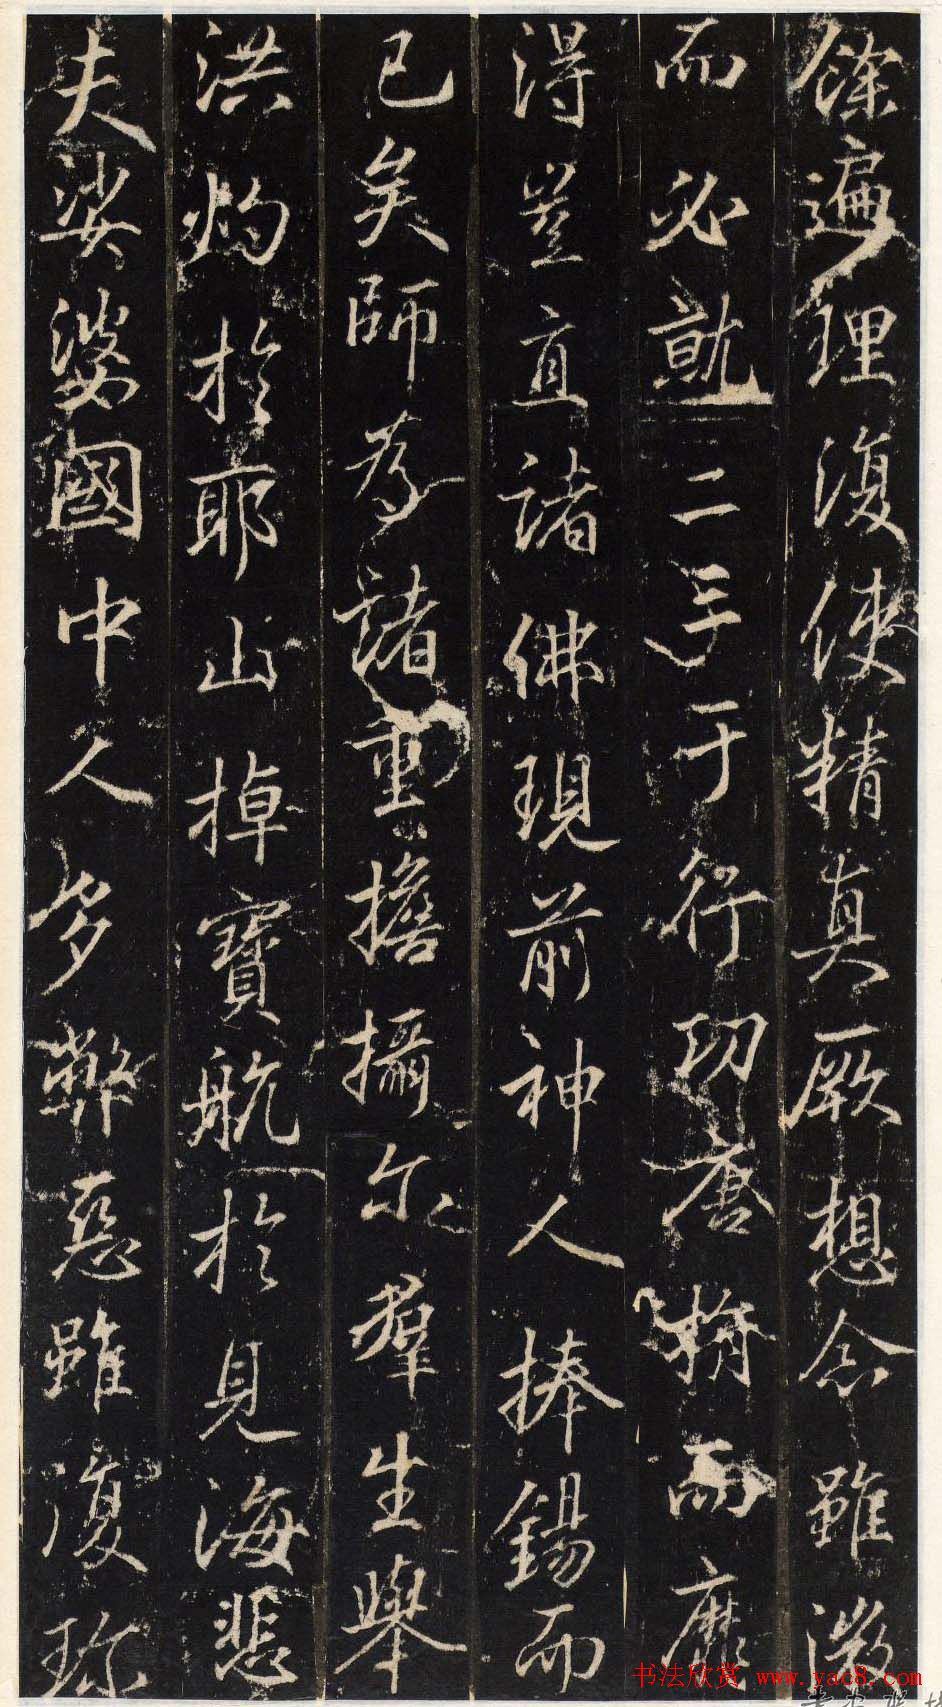 餘遍理復使精真厥想念雖微
而必就二三于行功唐捐而靡
得豈直諸佛現前神人捧錫而
已矣師為諸重擔攝尓群生舉
洪灼於耶山掉寶航於見海悲
夫娑婆國中人多弊惡雖復珎
书法欣赏 www.yac8.com